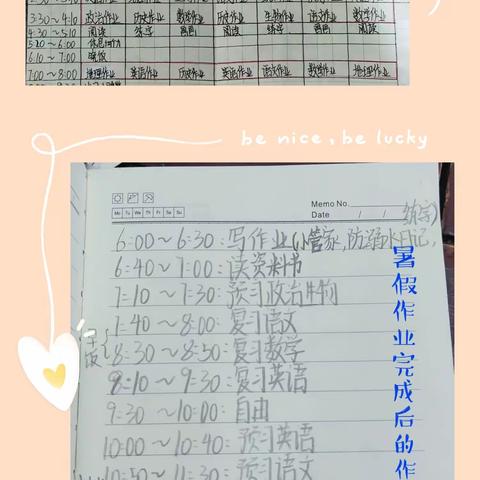 3:30~4:10 政治作业 历史作业 数学作业 历史作业 生物作业 语文作业 数学作业
4:30~5:10 阅读 练字 画画 阅读 练字 画画 阅读
5:20~6:00
6:10~7:00 晚饭
7:00~8:00 地理作业 英语作业 历史作业 英语作业 语文作业 数学作业 地理作业
be nice, be lucky
Memo No.
Mo Tu We Th Fr Sa Su
Date / /
练字)
6:00~6:30:写作业(小管家,防溺水日记,
6:40~7:00:读资料书
7:10~7:30:预习政治生物
7:40~8:00:复习语文
早饭
8:30~8:50:复习数学
8:10~9:30:复习英语
9:30~10:00:自由
10:00~10:40:预习英语
10:50~11:30:预习语文
暑假作业完成后的作